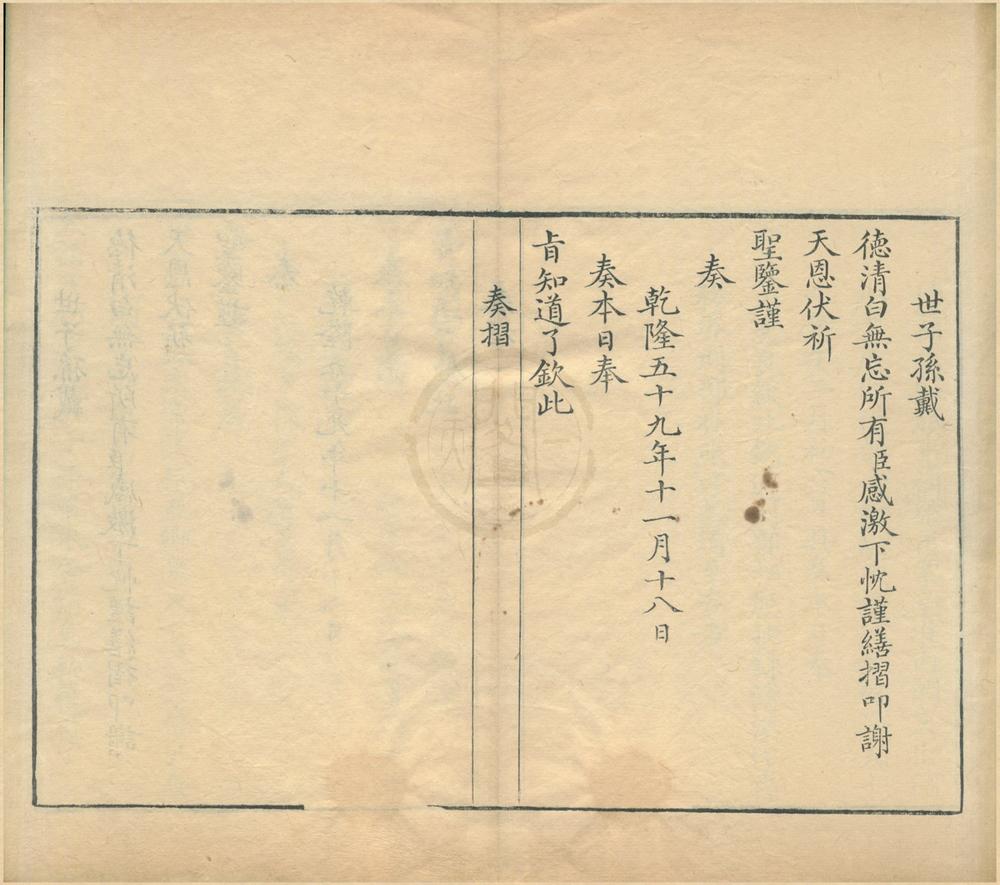 世子孫戴
德清白無忘所有臣感激下忱謹繕摺叩謝
天恩伏祈
聖鑒謹
奏
乾隆五十九年十一月十八日
奏本日奉
旨知道了欽此
奏摺